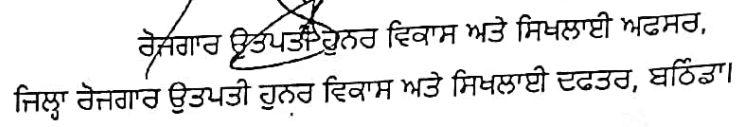 ਰੋਜਗਾਰ ਉਤਪਤੀ ਹੁਨਰ ਵਿਕਾਸ ਅਤੇ ਸਿਖਲਾਈ ਅਫਸਰ,
ਜਿਲ੍ਹਾ ਰੋਜਗਾਰ ਉਤਪਤੀ ਹੁਨਰ ਵਿਕਾਸ ਅਤੇ ਸਿਖਲਾਈ ਦਫਤਰ, ਬਠਿੰਡਾ।